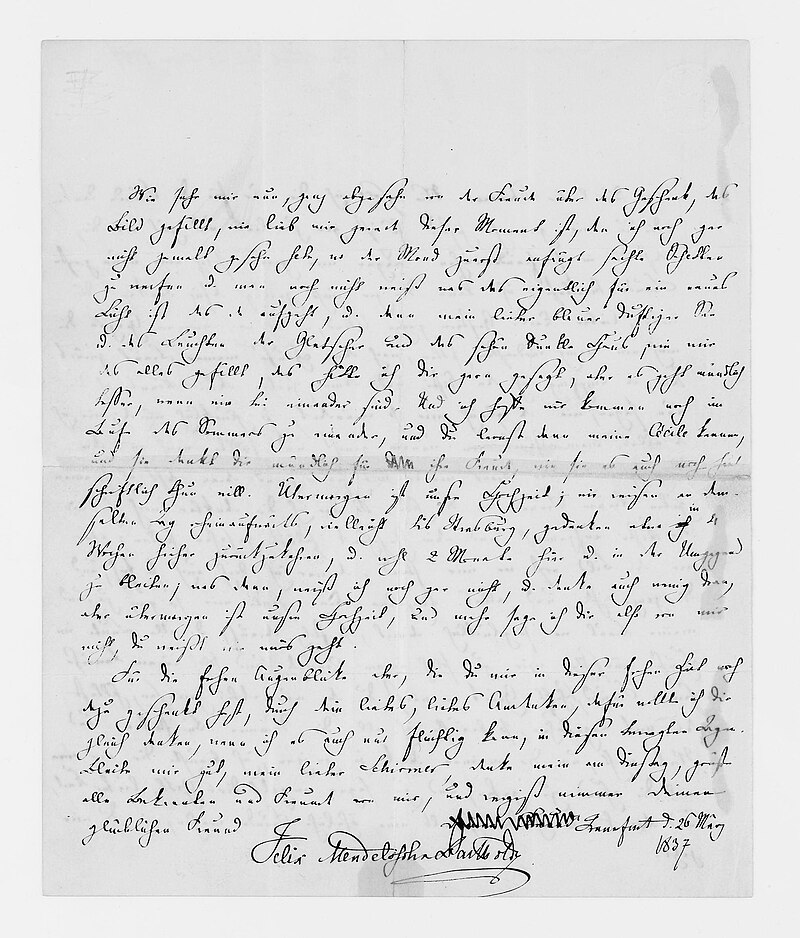 Wie sehr mir nun, ganz abgesehn von der Freude über das Geschenk, das
Bild gefällt, wie lieb mir gerade dieser Moment ist, den ich noch gar
nicht gemalt gesehn habe, wo der Mond zuerst anfängt leichte Schatten
zu werfen u. man noch nicht weiß was das eigentlich für ein neues
Licht ist das da aufgeht, u. dann mein lieber blauer duftiger See
u. das Leuchten der Gletscher und das schöne dunkle Haus, wie mir
das alles gefällt, das hätte ich Dir gern gesagt, aber es geht mündlich
besser, wenn wir bei einander sind. Und ich hoffe wir kommen noch im
Lauf des Sommers zu einander, und Du lernst dann meine Cécile kennen,
und sie dankt Dir mündlich für ihre Freude, wie sie es auch noch
schriftlich thun will. Übermorgen ist unsre Hochzeit; wir reisen an dem-
selben Tag rheinaufwärts, vielleicht bis Strasburg, gedenken aber in 4
Wochen hieher zurückzukehren, u. wohl 2 Monate hier u. in der Umgegend
zu bleiben; was dann, weiß ich noch gar nicht, u. denke auch wenig dran,
aber übermorgen ist unsre Hochzeit, und mehr sage ich Dir also von mir
nicht, Du weißt wie mirs geht.
Für die frohen Augenblicke aber, die Du mir in dieser frohen Zeit noch
dazu geschenkt hast, durch Dein liebes, liebes Andenken, dafür wollt ich Dir
gleich danken, wenn ich es auch nur flüchtig kann, in diesen bewegten Tagen.
Bleibe mir gut, mein lieber Schirmer, denke mein am Dinstag, grüße
alle Bekannten und Freunde von mir, und vergiß nimmer Deinen
glücklichen Freund
Felix Mendelssohn Bartholdy
Frankfurt d. 26 März
1837